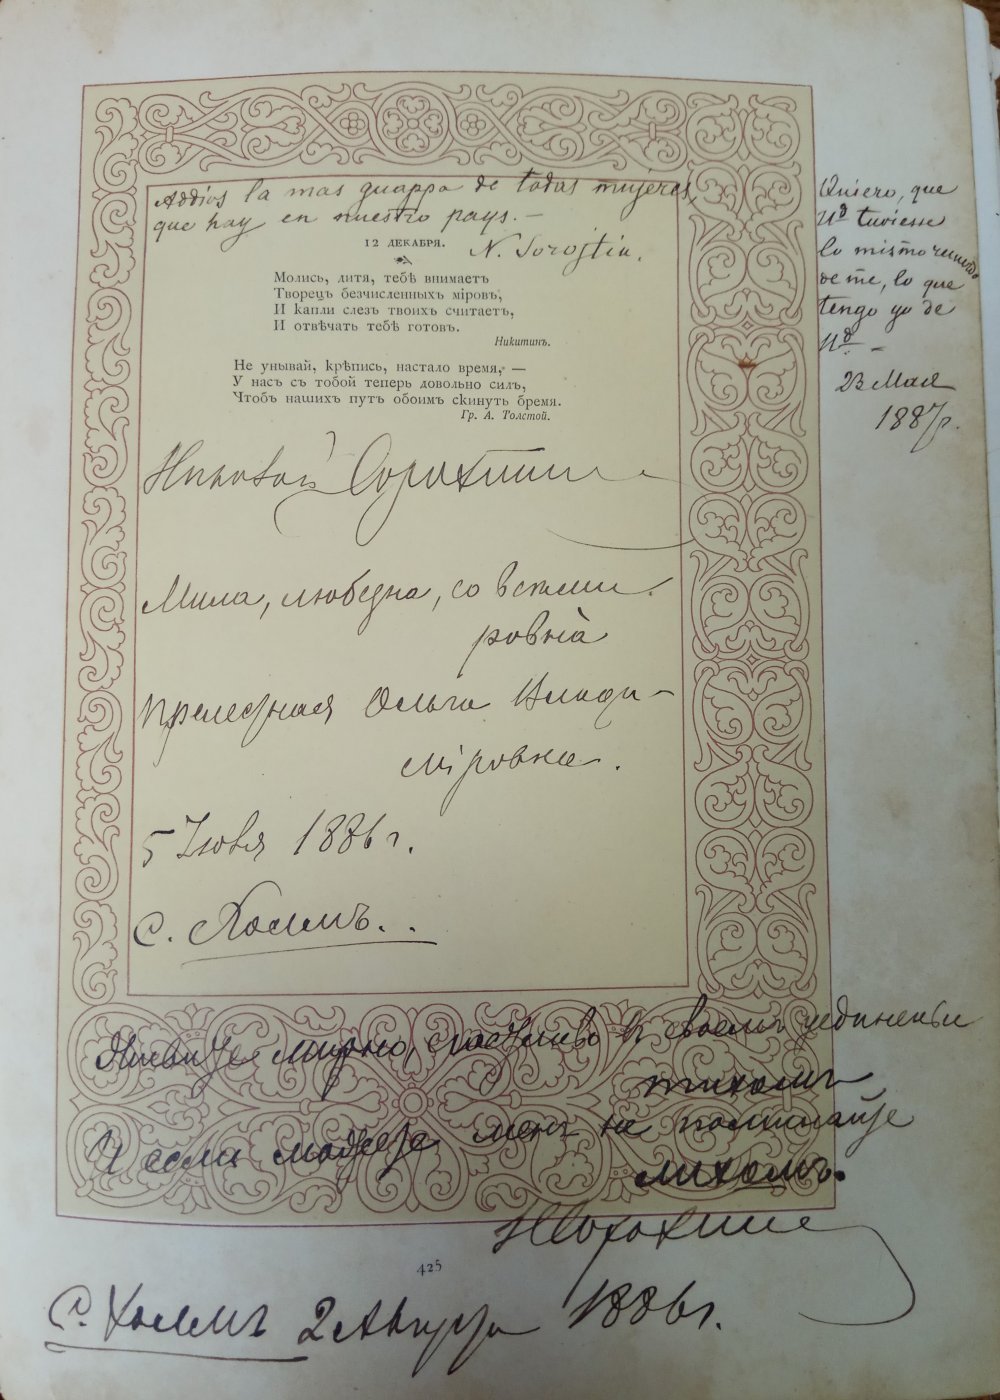 Addios la mas guappa de todas mujeres,
que hay en nuestro pays. —
12 ДЕКАБРЯ.
N. Sorojtin.
Молись, дитя, тебѣ внимаетъ
Творецъ безчисленныхъ мiровъ,
И капли слезъ твоихъ считаетъ,
И отвѣчать тебѣ готовъ.
Никитинъ.
Не унывай, крѣпись, настало время, —
У насъ съ тобой теперь довольно силъ,
Чтобъ нашихъ путъ обоимъ скинуть бремя.
Гр. А. Толстой.
Николай Сорохтин
Мила, любезна, со всѣми
ровна
Прелестная Ольга Влади-
мiровна.
5 Iюля 1886 г.
С. Холмъ.
Живите мирно, счастливо въ своемъ уединеньи
тихомъ
И если можете меня не поминайте
лихомъ.
НСорохтин
425
С. Холмъ 2 Августа 1886 г.
Quiero, que
Ud tuviesse
lo mismo recuerdo
de me, lo que
tengo yo de
Ud. —
23 Мая
1887 г.